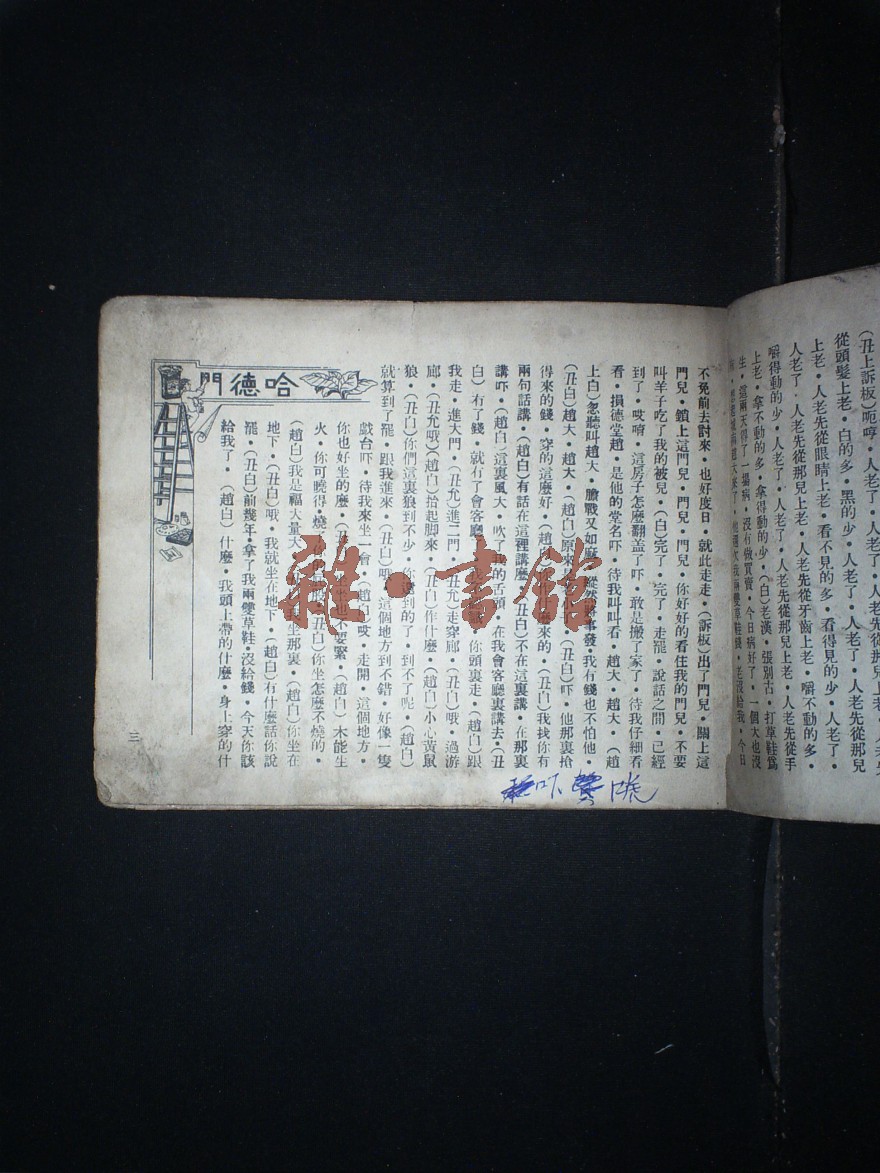 (丑上訴板)呃哼・人老了・人老先從那兒上老・人老先
從頭髮上老・白的多・黑的少・人老了・人老了・人老先從那兒
上老・人老先從眼睛上老・看不見的多・看得見的少・人老了・
人老了・人老先從那兒上老・人老先從牙齒上老・嚼不動的多・
嚼得動的少・人老了・人老了・人老先從那兒上老・人老先從手
上老・拿不動的多・拿得動的少・(白)老漢・張別古・打草鞋爲
生・這兩天得了一場病・沒有做買賣・今日病好了・一個大也沒
我兩雙草鞋錢・老沒給我・今日
不免前去討來・也好度日・就此走走・(訴板)出了門兒・關上這
門兒・鎖上這門兒・門兒・門兒・你好好的看住我的門兒・不要
叫羊子吃了我的被兒・(白)完了・完了・走罷・說話之間・已經
到了・哎唷・這房子怎麼翻蓋了吓・敢是搬了家了・待我仔細看
看・損德堂趙・是他的堂名吓・待我叫叫看・趙大・趙大・(趙
上白)忽聽叫趙大・膽戰又如麻・從然缺事發・我有錢也不怕他・
(丑白)趙大・趙大・(趙白)原來是老(丑白)吓・他那裏搶
得來的錢・穿的這麼好・(趙白)來的・(丑白)我找你有
兩句話講・(趙白)有話在這裡講麼・(丑白)不在這裏講・在那裏
講吓・(趙白)這裏風大・吹了我的舌頭・在我會客廳裏講去・(丑
白)有了錢・就有了會客廳・你頭裏走・(趙白)跟
我走・進大門・(丑允)進二門・(丑允)走穿廊・(丑白)哦・過游
廊・(丑允哦)(趙白)抬起脚來・(丑白)作什麼・(趙白)小心黃鼠
狼・(丑白)你們這裏狼到不少・你到的了・到不了呢・(趙白)
就算到了罷・跟我進來・(丑白)哦・這個地方到不錯・好像一隻
戲台吓・待我來坐一會・(趙白)哎・走開・這個地方・
你也好坐的麼・也不要緊・(趙白)木能生
火・你可曉得・燒(丑白)你坐怎麼不燒的・
(趙白)我是福大量大・坐那裏・(趙白)你坐在
地下・(丑白)哦・我就坐在地下・(趙白)有什麼話你說
罷・(丑白)前幾年・拿了我兩雙草鞋・沒給錢・今天你該
給我了・(趙白)什麼・我頭上帶的什麼・身上穿的什
哈德門
三
雜・書館